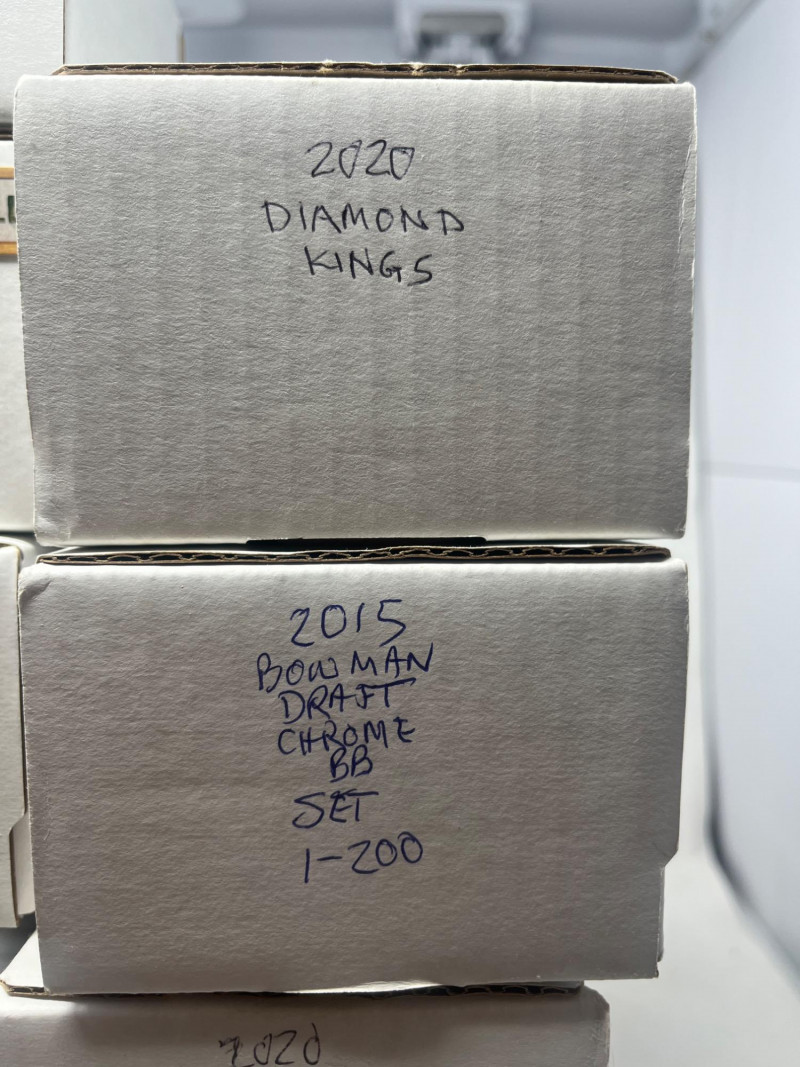 2020
DIAMOND
KINGS
2015
BOWMAN
DRAFT
CHROME
BB
SET
1-200
2020